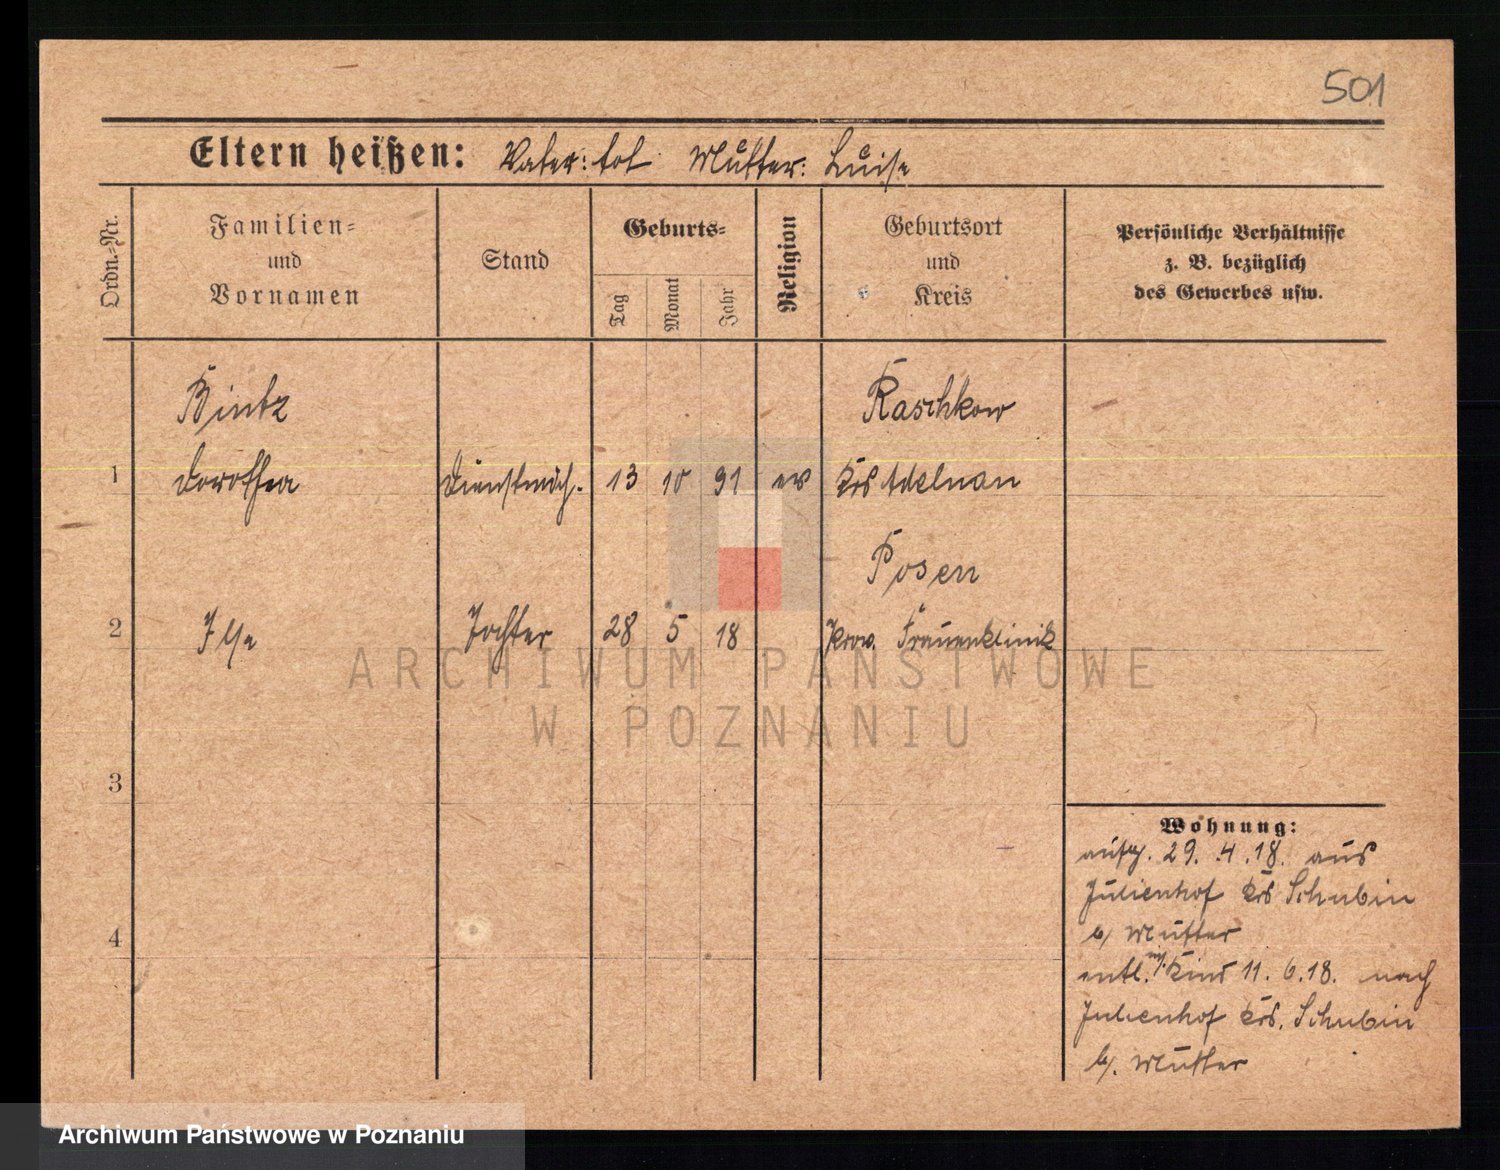 501
Eltern heißen: Vater: tot Mutter: Luise
Ordn.-Nr.
Familien-
und
Vornamen
Stand
Geburts-
Tag
Monat
Jahr
Religion
Geburtsort
und
Kreis
Persönliche Verhältnisse
z. B. bezüglich
des Gewerbes usw.
Bintz
Raschkow
1 Dorothea Dienstmäd. 13 10 91 ev Krs Adelnau
Posen
2 Ilse Tochter 28 5 18 Prov. Frauenklinik
3
4
Wohnung:
aufg. 29. 4. 18. aus
Julienhof Krs Schubin
b/ Mutter
entl. m/. Kind 11. 6. 18. nach
Julienhof Krs. Schubin
b/. Mutter
ARCHIWUM PAŃSTWOWE
W POZNANIU
Archiwum Państwowe w Poznaniu